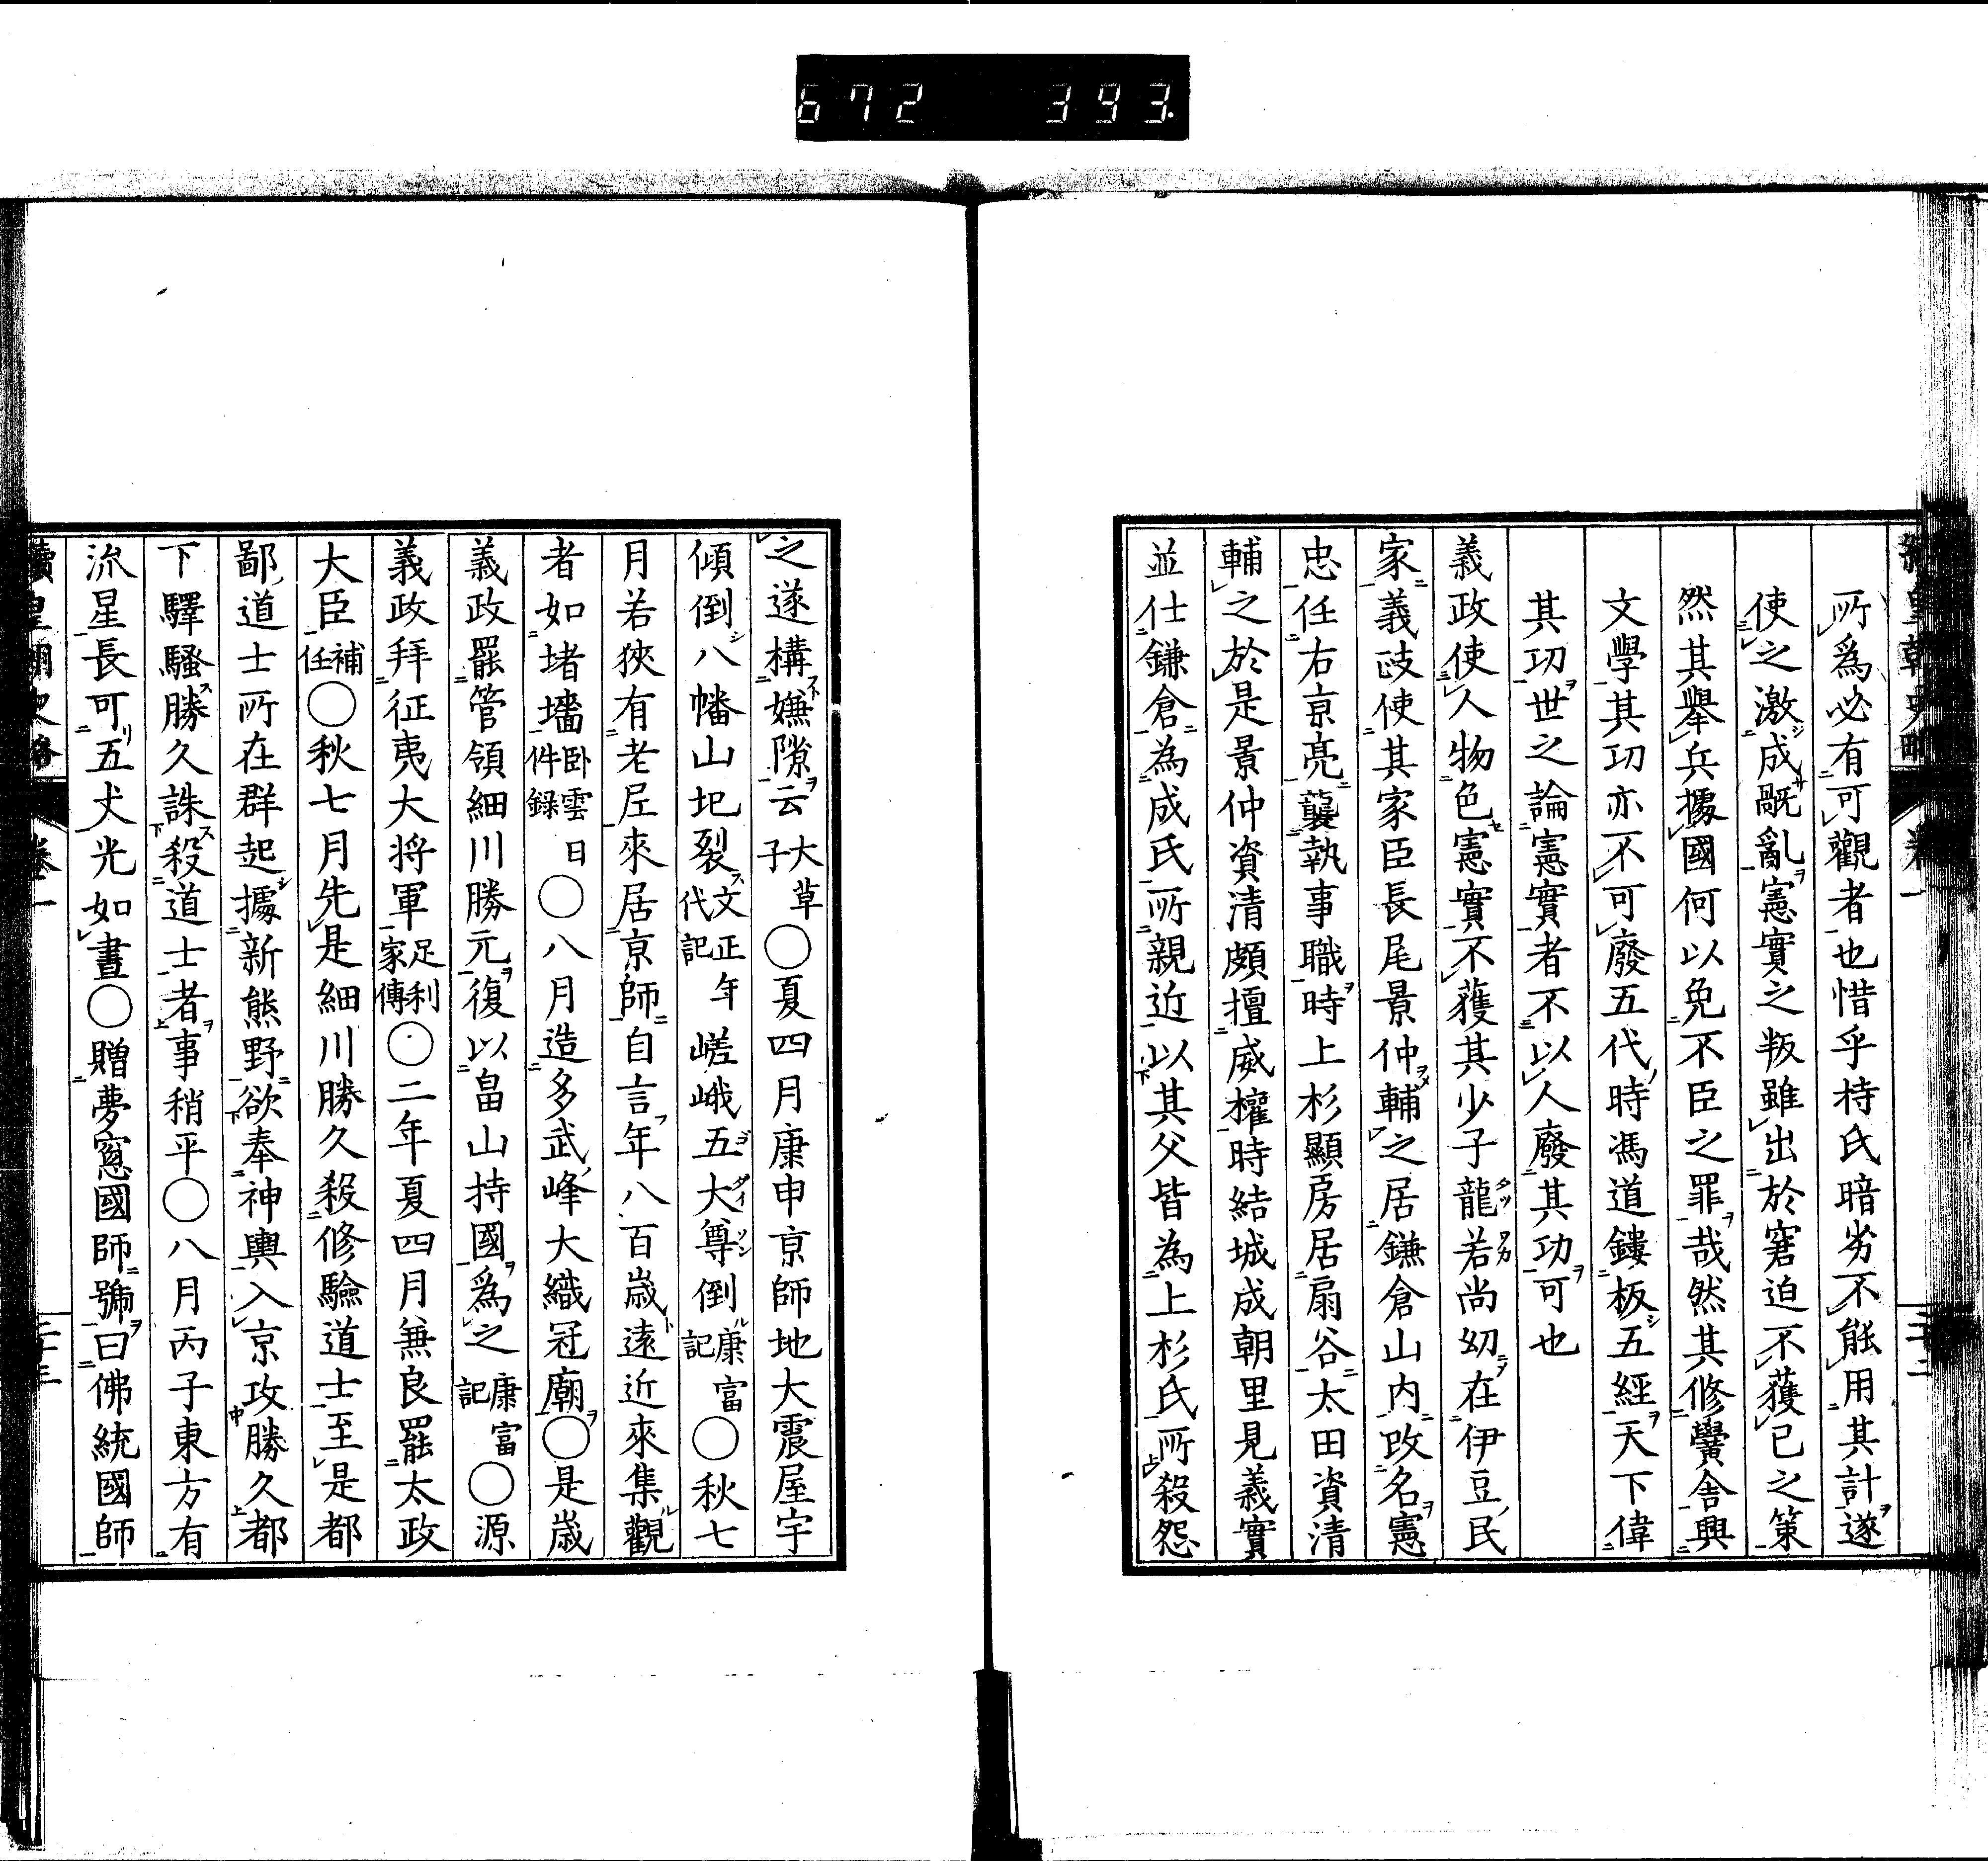 672 393.
續皇朝史略 卷一 三十二
所爲必有可觀者也惜乎持氏暗劣不能用其計遂
使之激成戡亂憲實之叛雖出於窘迫不獲已之策
然其擧兵據國何以免不臣之罪哉然其修黌舎興
文學其功亦不可廢五代時馮道鏤板五經天下偉
其功世之論憲實者不以人廢其功可也
義政使人物色憲實不獲其少子龍若尚幼在伊豆民
家義政使其家臣長尾景仲輔之居鎌倉山内改名憲
忠任右京亮襲執事職時上杉顯房居扇谷太田資清
輔之於是景仲資清頗擅威權時結城成朝里見義實
並仕鎌倉為成氏所親近以其父皆為上杉氏所殺怨
之遂構嫌隙云大草子〇夏四月庚申京師地大震屋宇
傾倒八幡山圯裂文正年代記嵯峨五大尊倒康富記〇秋七
月若狹有老尼來居京師自言年八百歳遠近來集觀
者如堵墻臥雲日件録〇八月造多武峰大織冠廟〇是歳
義政罷管領細川勝元復以畠山持國爲之康富記〇源
義政拜征夷大将軍足利家傳〇二年夏四月無良罷太政
大臣補任〇秋七月先是細川勝久殺修驗道士至是都
鄙道士所在群起據新熊野欲奉神輿入京攻勝久都
下驛騷勝久誅殺道士者事稍平〇八月丙子東方有
流星長可五丈光如晝〇贈夢窓國師號曰佛統國師
續皇朝史略 卷一 三十三